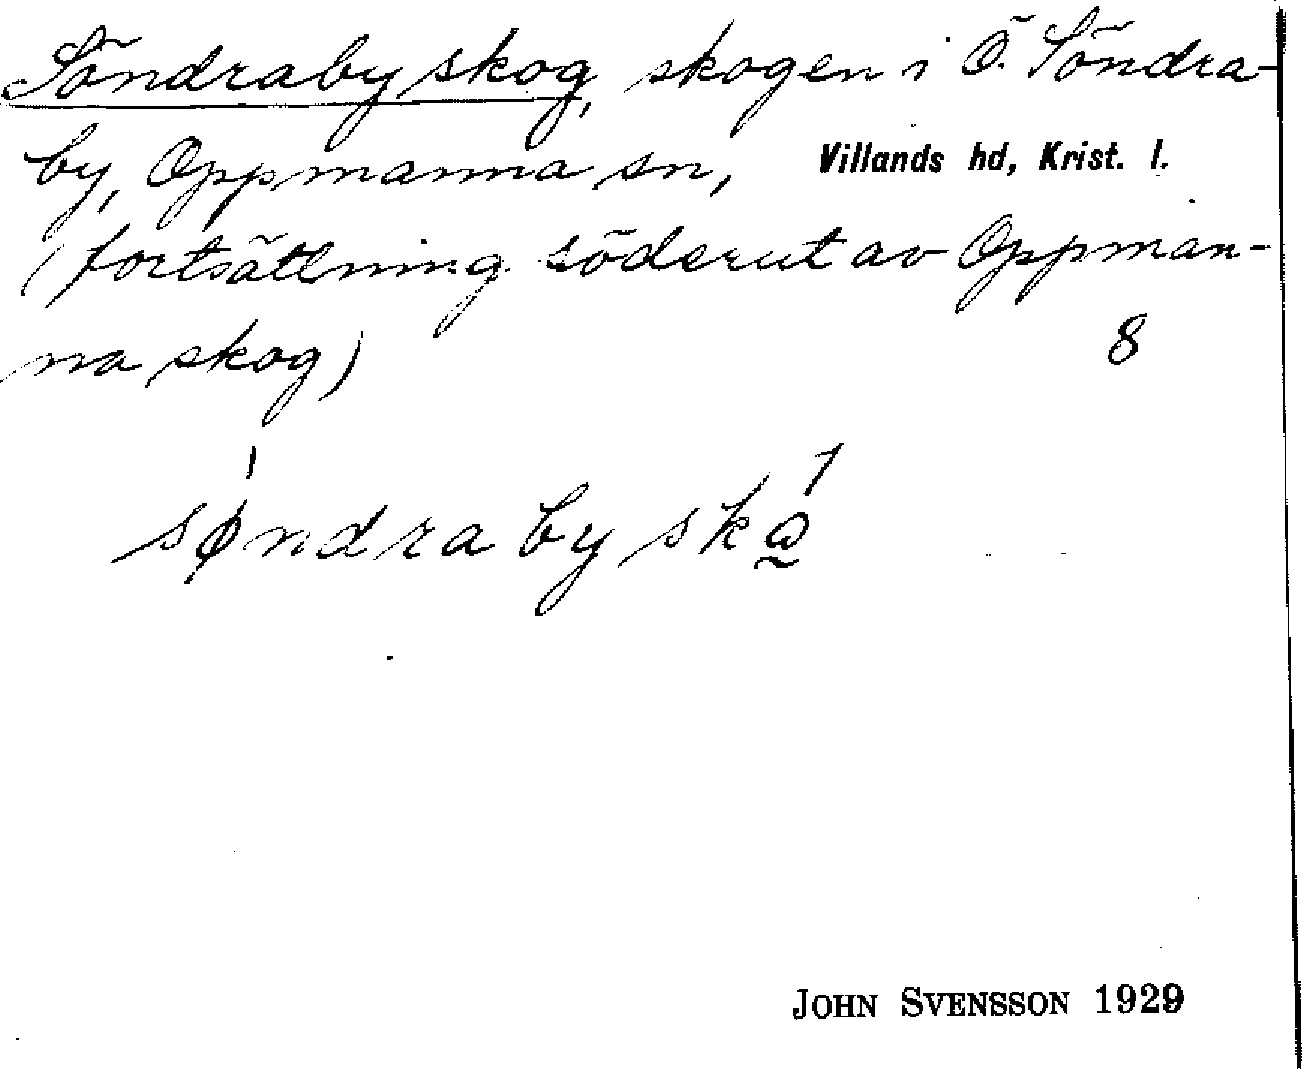 Söndraby skog, skogen i Ö. Söndra-
by, Oppmanna sn, Villands hd, Krist. l.
(fortsättning söderut av Oppman-
na skog) 8
søndra by sk
JOHN SVENSSON 1929